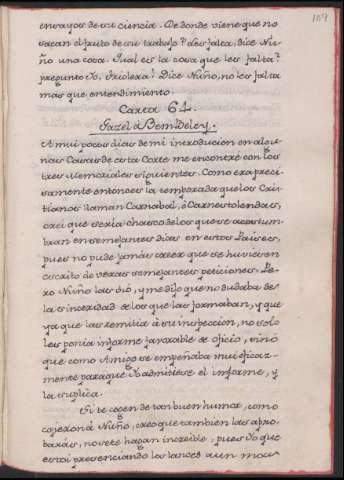 109
ensayos de su ciencia. De donde viene que no
sacan el fruto de su trabajo? Les falta, dice Nu-
ño una cosa. Qual es la cosa que les falta?
pregunto Yo. Friolera! Dice Nuño, no les falta
mas que entendimiento.
Carta 64.
Gazel á Bem Beley.
A mui pocos dias de mi introducion en algu-
nas Casas de esta Corte me encontre con los
tres Memoriales siguientes. Como era preci-
samente entonces la temporada que los Cris-
tianos llaman Carnabal, ó Carnestolendas,
crei que seria chasco de los que se acostum-
bran en semejantes dias en estos Paises,
pues no pude jamás creer que se huviesen
escrito de veras semejantes peticiones. Pe-
ro Nuño las vió, y me dijo que no dudaba de
la sinceridad de los que las formaban, y que
ya que las remitia á su inspeccion, no solo
les ponia informe favorable de oficio, sinó
que como Amigo se empeñaba mui eficaz-
mente para que Yo admitiese el informe, y
la suplica.
Si te cogen de tan buen humor, como
cojieron á Nuño, creo que tambien las apro-
barás, no se te hagan increible, pues Yo que
estoi presenciando los lances aun mas